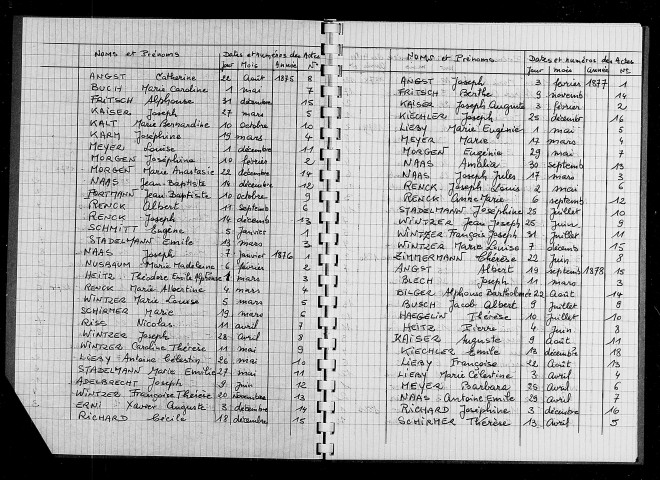 Noms et Prénoms Dates et numéros des Actes
Jour Mois Année N°
ANGST Catherine 22 Août 1875 8
BUCH Marie Caroline 1 mai 7
FRITSCH Alphonse 31 décembre 15
KAISER Joseph 27 mars 5
KALT Marie Bernardine 10 Octobre 10
KARM Joséphine 19 mars 4
MEYER Louise 1 décembre 11
MORGEN Joséphine 10 février 2
MORGEN Marie Anastasie 22 décembre 14
NAAS Jean Baptiste 14 décembre 12
PORTMANN Jean Baptiste 10 octobre 9
RENCK Albert 11 Septemb 6
RENCK Joseph 14 décemb 13
SCHMITT Eugène 5 janvier 1
STADELMANN Emile 13 mars 3
NAAS Joseph 7 janvier 1876 1
NUSBAUM Marie Madeleine 6 février 2
HEITZ Théodore Emile Alphonse mars 3
RENCK Marie Albertine 4 mars 4
WINTZER Marie Louise 5 mars 5
SCHIRMER Marie 19 mars 6
RISS Nicolas 11 avril 7
WINTZER Joseph 28 avril 8
WINTZER Caroline Thérèse 11 mai 9
LIEBY Antoine Célestin 26 mai 10
STADELMANN Marie Emilie 27 mai 11
ADELBRECHT Joseph 9 juin 12
WINTZER Françoise Thérèse 20 novembre 13
ERNI Xavier Auguste 3 décembre 14
RICHARD Cécile 18 décembre 15
Noms et Prénoms Dates et numéros des Actes
Jour mois année N°
ANGST Joseph 3 février 1877 1
FRITSCH Berthe 9 novemb 14
KAISER Joseph Auguste 3 février 2
KIECHLER Joseph 25 décembr 16
LIEBY Marie Eugénie 1 mai 5
MEYER Marie 17 mars 4
MORGEN Eugénie 29 mai 7
NAAS Amalia 30 septemb 13
NAAS Joseph Jules 17 mars 3
RENCK Joseph Louis 2 mai 6
RENCK Anne Marie 6 septemb 12
STADELMANN Joséphine 25 juillet 10
WINTZER Jean Joseph 25 juin 9
WINTZER François Joseph 31 juillet 11
WINTZER Marie Louise 7 décemb 15
ZIMMERMANN Thérèse 22 juin 8
ANGST Albert 19 septemb 1878 15
BLECH Joseph 11 mars 3
BILGER Alphonse Bartholomée 22 Août 14
BUSCH Jacob Albert 9 juillet 9
HAEGELIN Thérèse 10 juillet 10
HEITZ Pierre 4 juin 8
KAISER Auguste 9 Août 11
KIECHLER Emile 13 décembre 18
LIEBY Françoise 22 Août 13
LIEBY Marie Célestine 3 avril 4
MEYER Barbara 25 avril 6
NAAS Antoine Emile 29 avril 7
RICHARD Joséphine 3 décembre 16
SCHIRMER Thérèse 13 avril 5